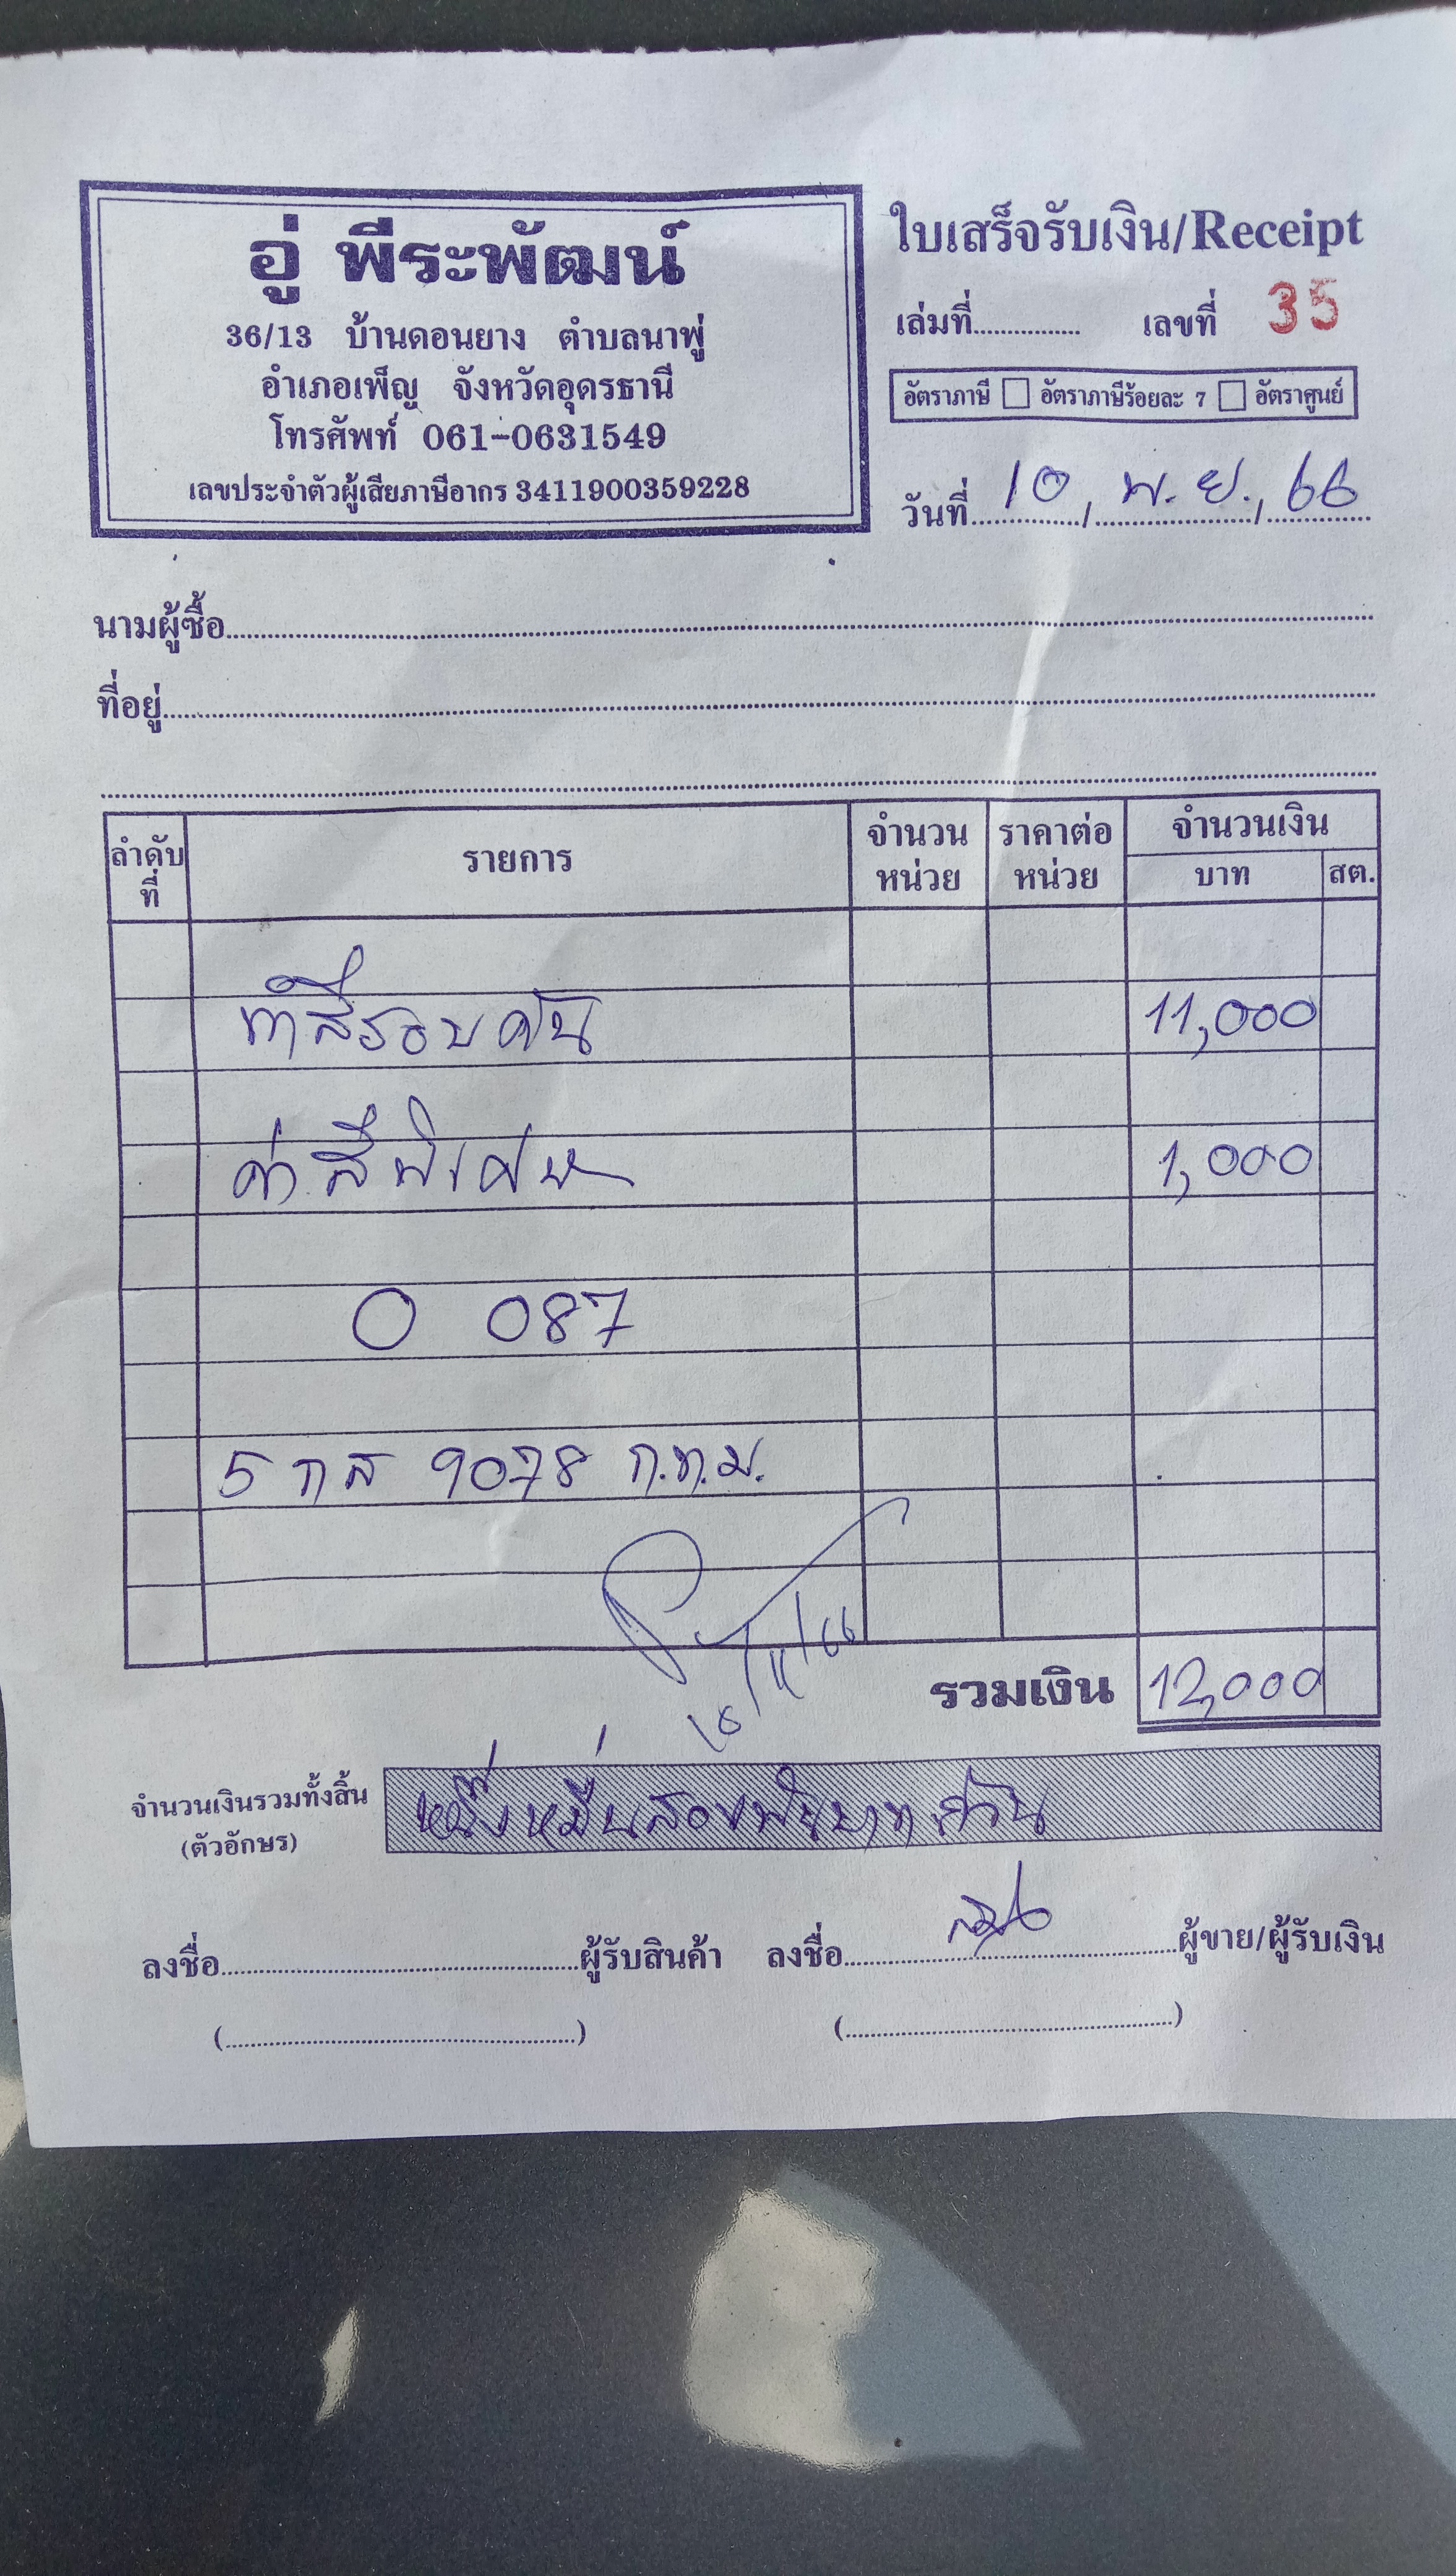 อู่ พีระพัฒน์
36/13 บ้านดอนยาง ตำบลนาพู่
อำเภอเพ็ญ จังหวัดอุดรธานี
โทรศัพท์ 061-0631549
เลขประจำตัวผู้เสียภาษีอากร 3411900359228
ใบเสร็จรับเงิน/Receipt
เล่มที่............... เลขที่ 35
อัตราภาษี ☐ อัตราภาษีร้อยละ 7 ☐ อัตราศูนย์
วันที่ 10 / พ.ย. / 66
นามผู้ซื้อ
ที่อยู่
ลำดับที่ รายการ จำนวนหน่วย ราคาต่อหน่วย จำนวนเงิน
บาท สต.
ทำสีรอบคัน 11,000
ค่าสีพิเศษ 1,000
O 087
5 กส 9078 ก.ท.ม.
รวมเงิน 12,000
จำนวนเงินรวมทั้งสิ้น (ตัวอักษร) หนึ่งหมื่นสองพันบาทถ้วน
ลงชื่อ ผู้รับสินค้า ลงชื่อ ผู้ขาย/ผู้รับเงิน